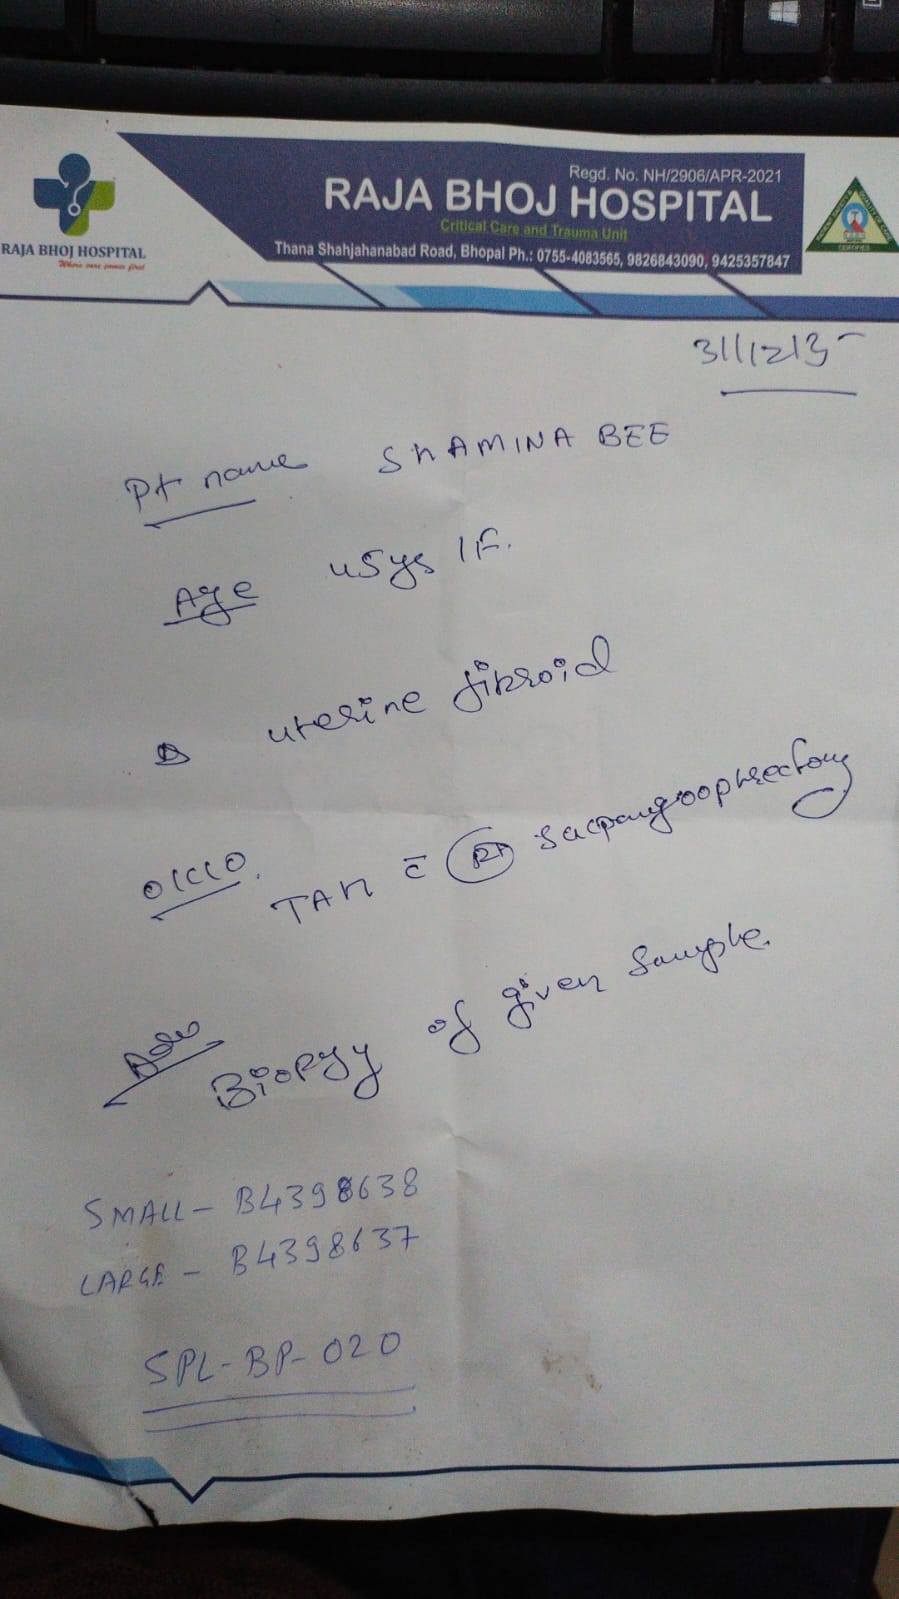 Regd. No. NH/2906/APR-2021
RAJA BHOJ HOSPITAL
Critical Care and Trauma Unit
Thana Shahjahanabad Road, Bhopal Ph.: 0755-4083565, 9826843090, 9425357847
RAJA BHOJ HOSPITAL
Where care comes first
CERTIFIED
Pt name SHAMINA BEE
Age 45ys 1F.
uterine fibroid
TAH c̄ Rt
Adv
Biopsy of given Sample.
SMALL - B4398638
LARGE - B4398637
SPL-BP-020